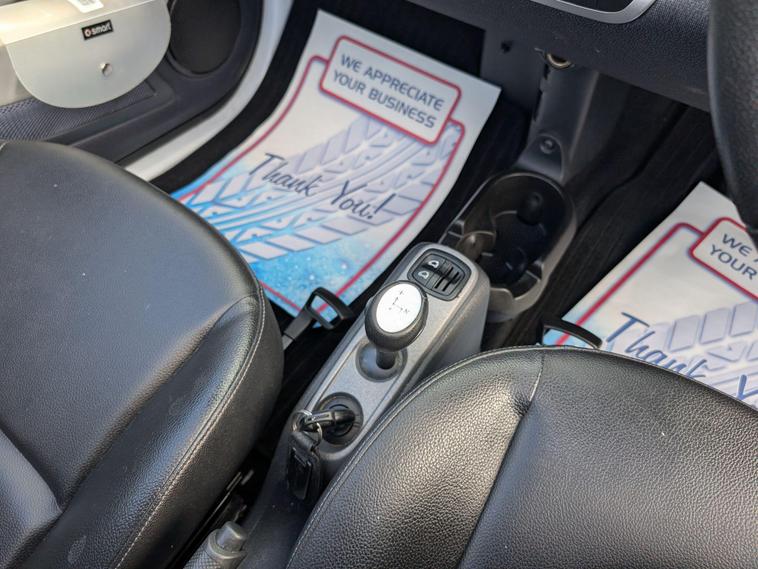 smart
WE APPRECIATE
YOUR BUSINESS
Thank You!
WE A
YOUR
Thank Y
+
-
N